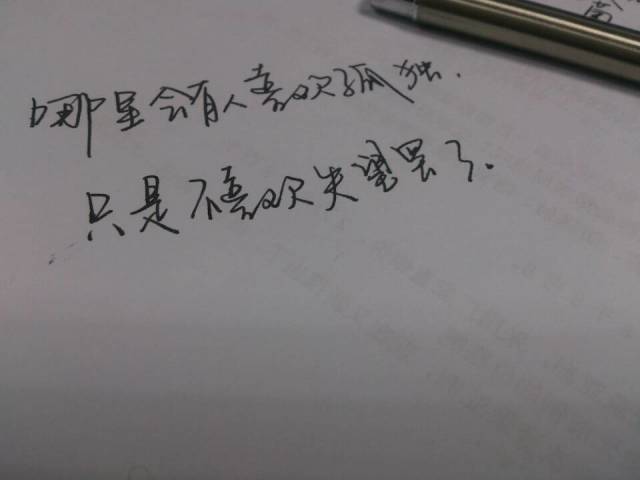 哪里会有人喜欢孤独.
只是不喜欢失望罢了.